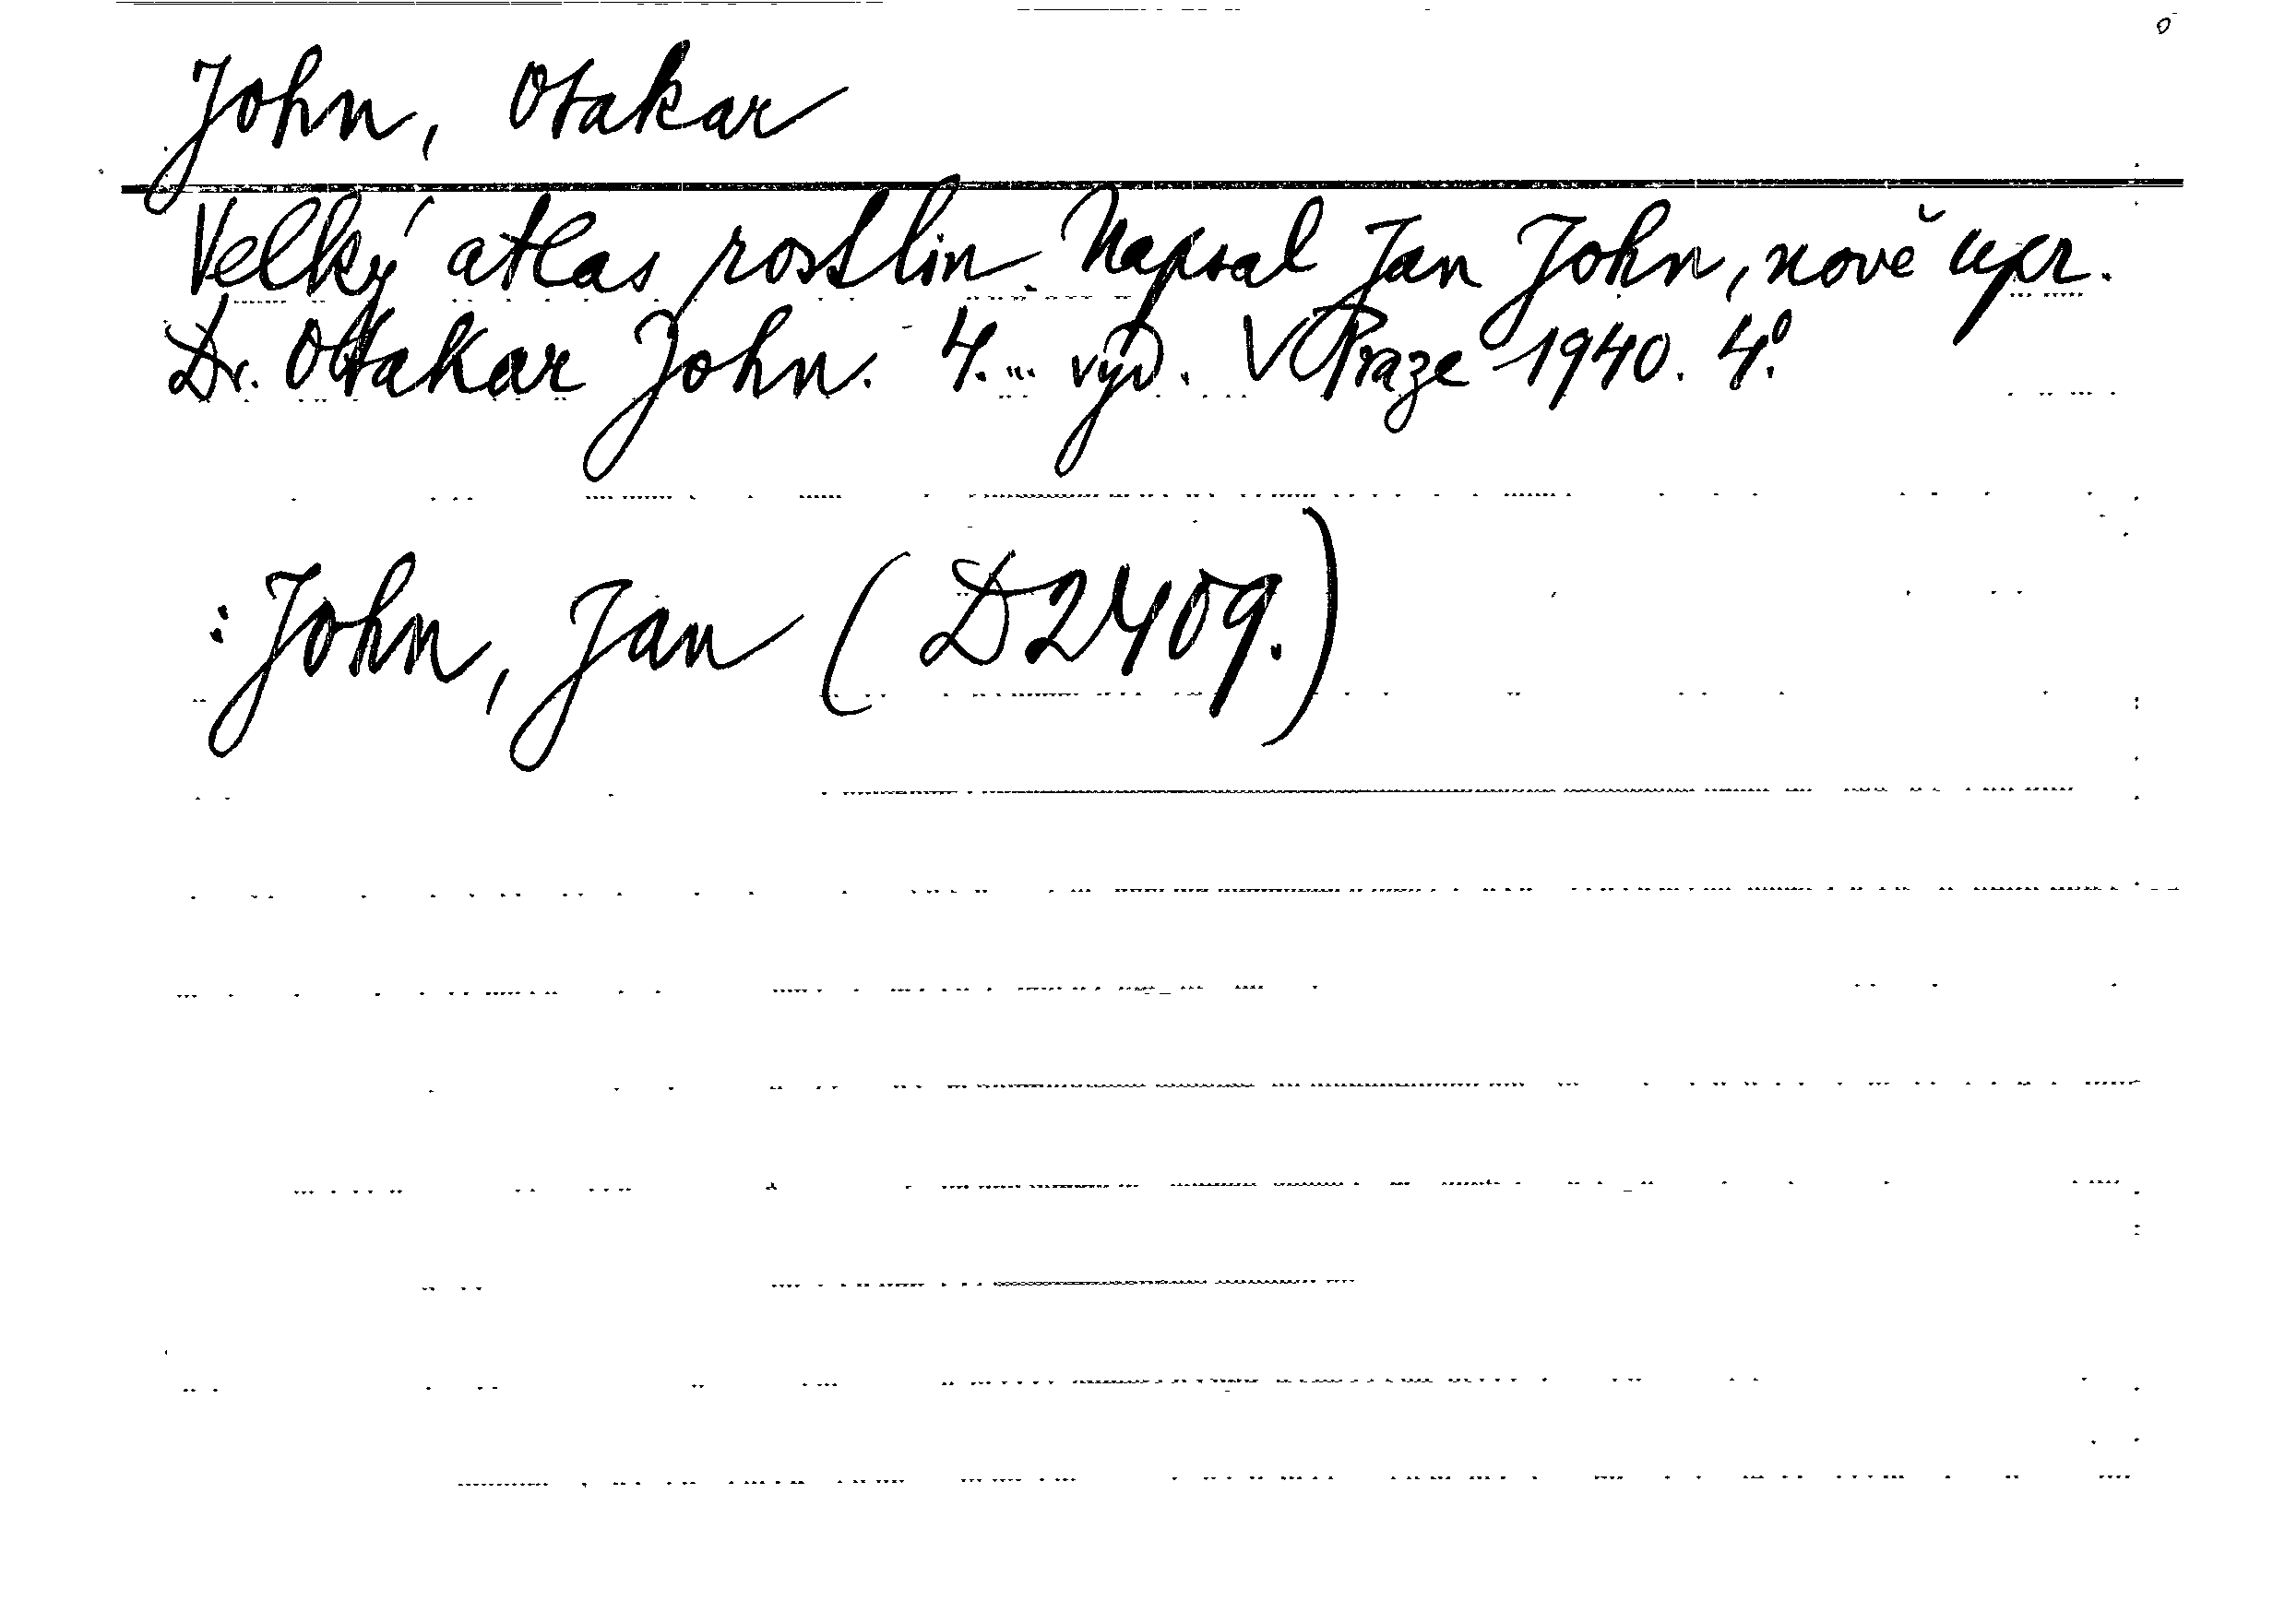 John, Otakar
Velký atlas rostlin. Napsal Jan John, nově upr.
Dr. Otakar John. 4. vyd. V Praze 1940. 4°.
: John, Jan (D2409.)